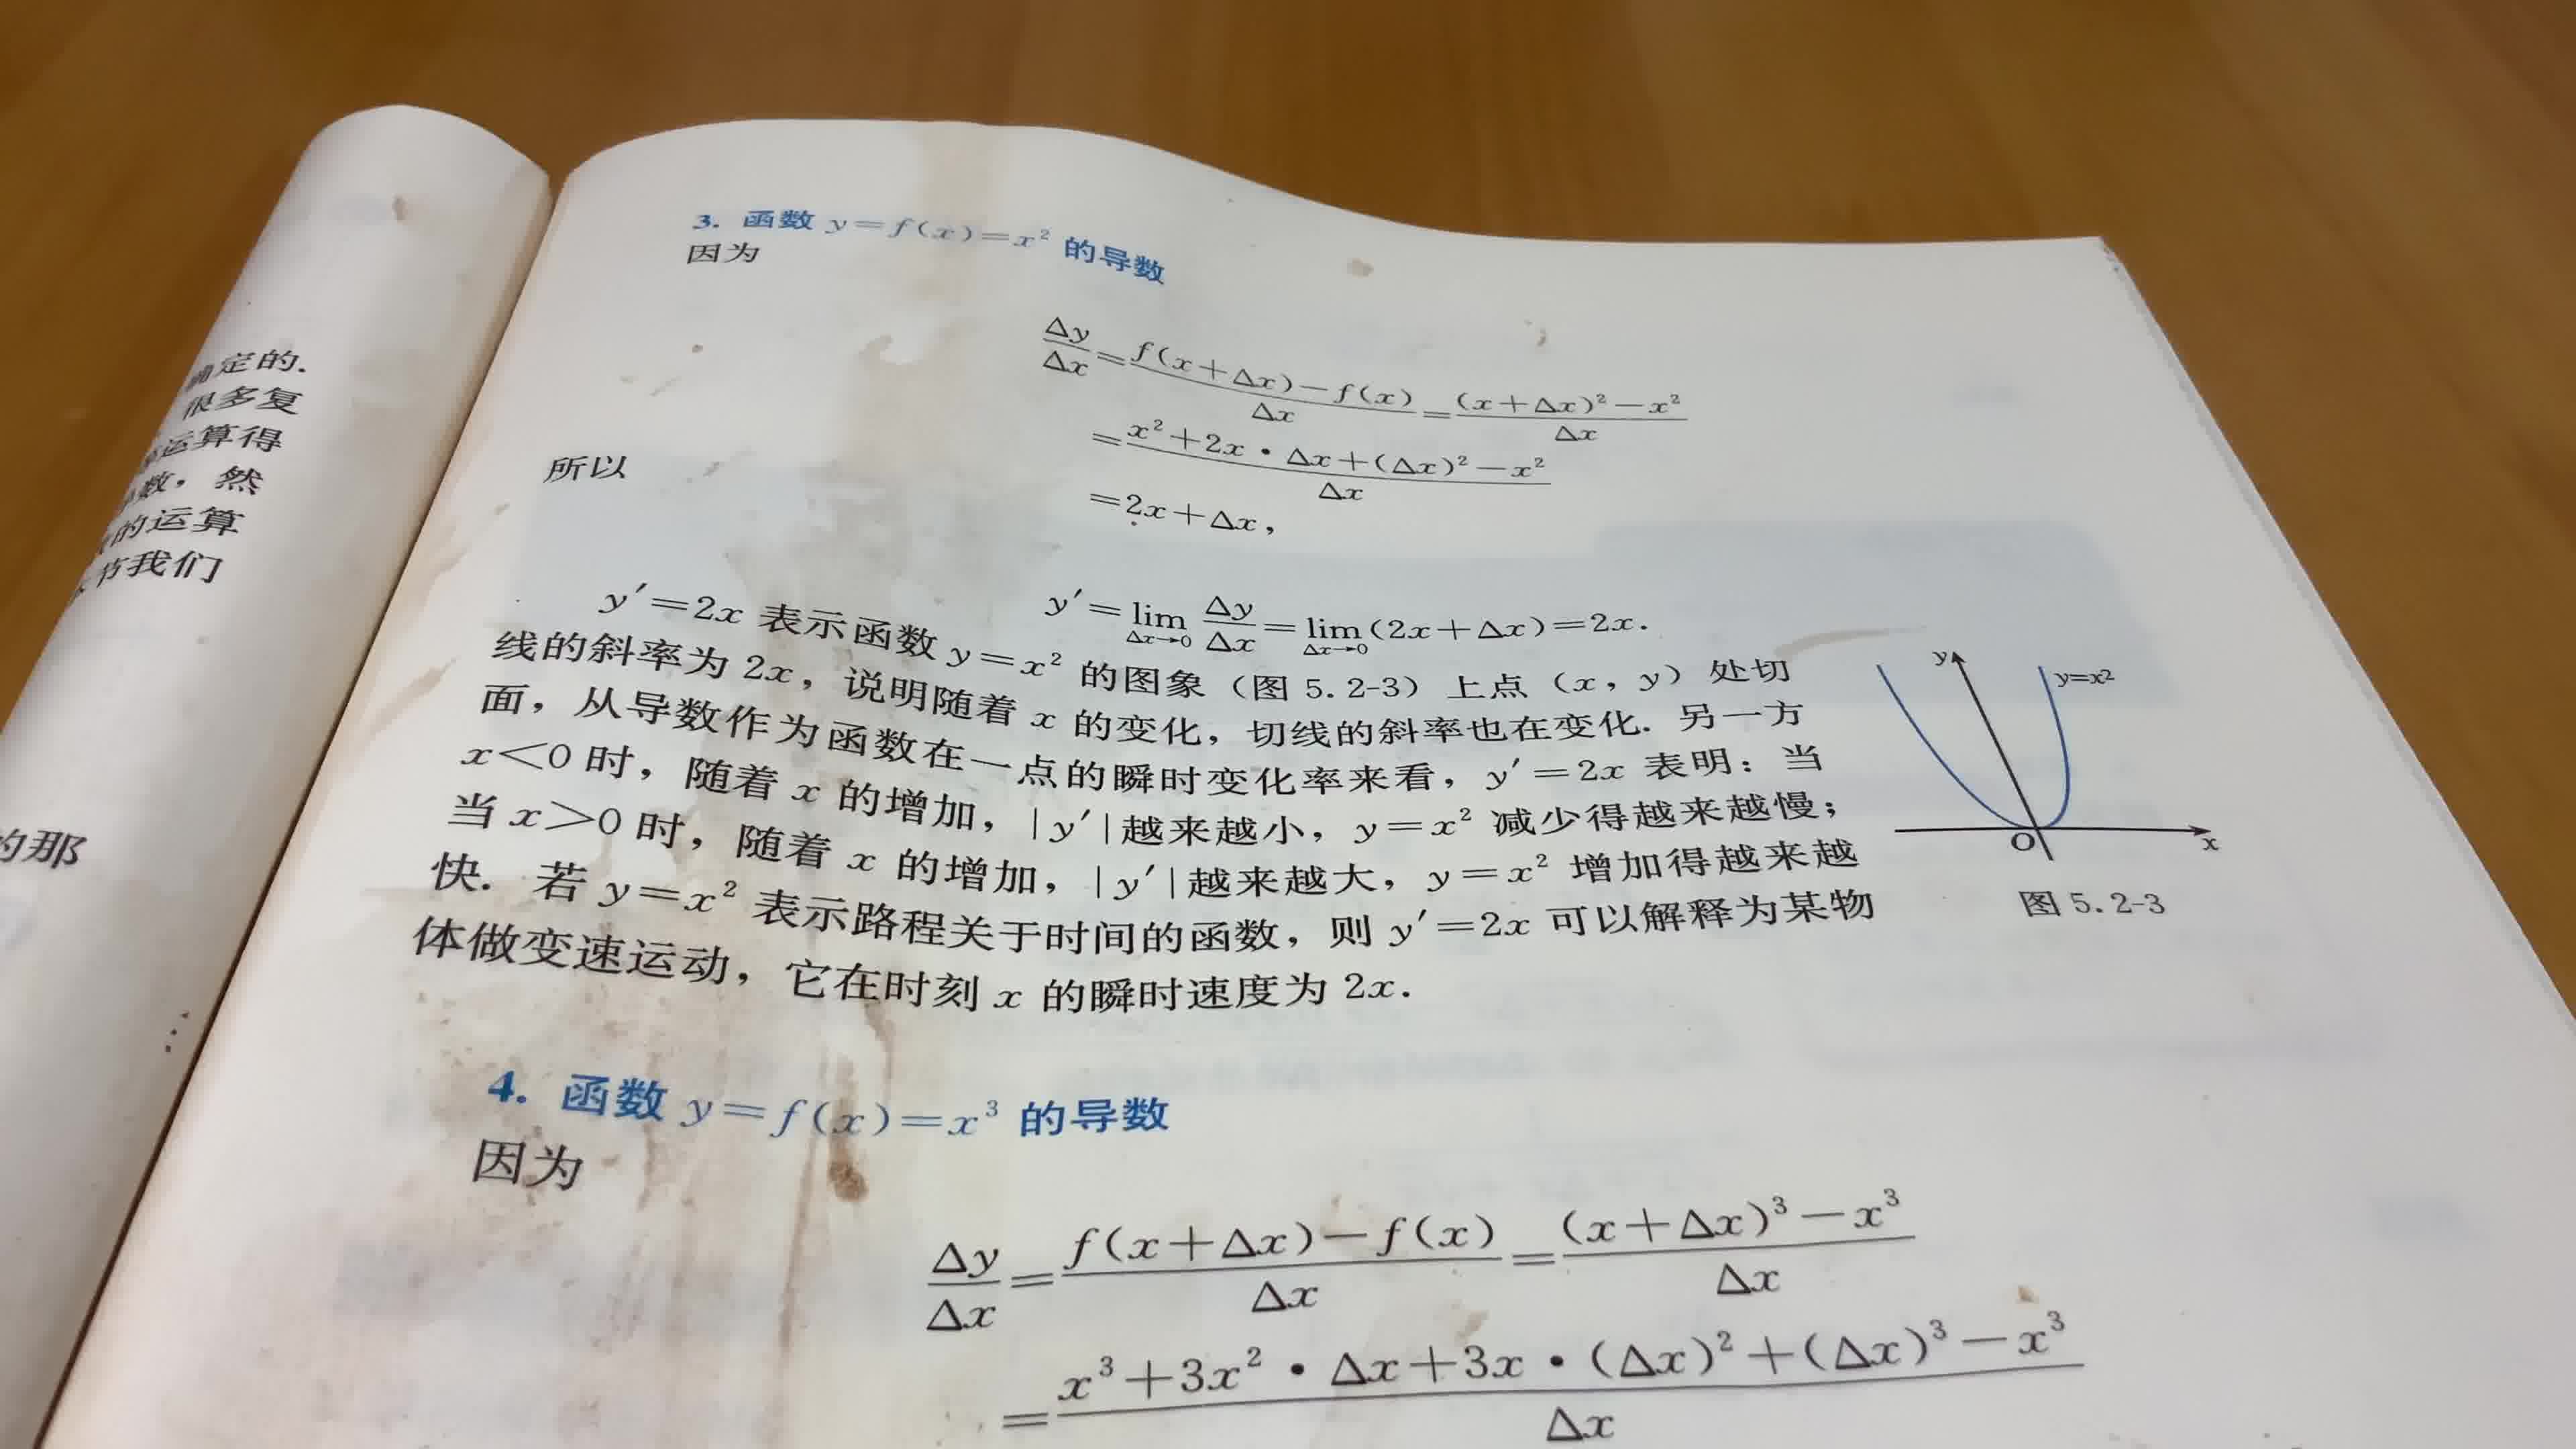 确定的.
很多复
运算得
数，然
的运算
节我们
的那
3. 函数 y=f(x)=x² 的导数
因为
Δy/Δx=(f(x+Δx)-f(x))/Δx=((x+Δx)²-x²)/Δx
=(x²+2x·Δx+(Δx)²-x²)/Δx
=2x+Δx,
所以
y′=lim(Δx→0) Δy/Δx=lim(Δx→0)(2x+Δx)=2x.
y′=2x 表示函数 y=x² 的图象（图 5.2-3）上点（x，y）处切
线的斜率为 2x，说明随着 x 的变化，切线的斜率也在变化. 另一方
面，从导数作为函数在一点的瞬时变化率来看，y′=2x 表明：当
x<0 时，随着 x 的增加，|y′|越来越小，y=x² 减少得越来越慢；
当 x>0 时，随着 x 的增加，|y′|越来越大，y=x² 增加得越来越
快. 若 y=x² 表示路程关于时间的函数，则 y′=2x 可以解释为某物
体做变速运动，它在时刻 x 的瞬时速度为 2x.
y
y=x²
O
x
图 5.2-3
4. 函数 y=f(x)=x³ 的导数
因为
Δy/Δx=(f(x+Δx)-f(x))/Δx=((x+Δx)³-x³)/Δx
=(x³+3x²·Δx+3x·(Δx)²+(Δx)³-x³)/Δx